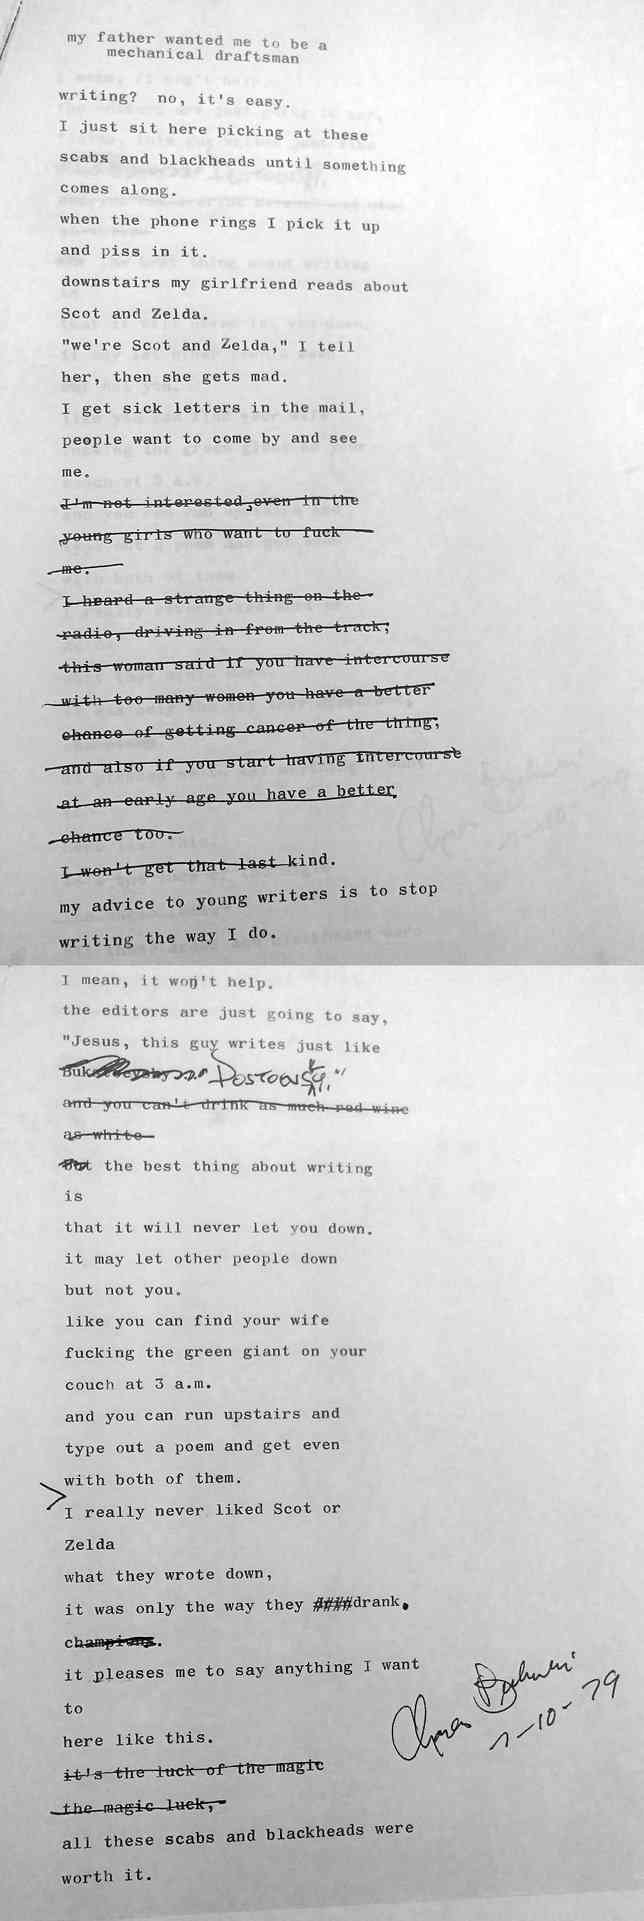 my father wanted me to be a
mechanical draftsman
writing? no, it's easy.
I just sit here picking at these
scabs and blackheads until something
comes along.
when the phone rings I pick it up
and piss in it.
downstairs my girlfriend reads about
Scot and Zelda.
"we're Scot and Zelda," I tell
her, then she gets mad.
I get sick letters in the mail,
people want to come by and see
me.
I'm not interested,even in the
young girls who want to fuck
me.
I heard a strange thing on the
radio, driving in from the track;
this woman said if you have intercourse
with too many women you have a better
chance of getting cancer of the thing;
and also if you start having intercourse
at an early age you have a better
chance too.
I won't get that last kind.
my advice to young writers is to stop
writing the way I do.
I mean, it won't help.
the editors are just going to say,
"Jesus, this guy writes just like
DOSTOEVSKY."
and you can't drink as much red wine
as white
But the best thing about writing
is
that it will never let you down.
it may let other people down
but not you.
like you can find your wife
fucking the green giant on your
couch at 3 a.m.
and you can run upstairs and
type out a poem and get even
with both of them.
I really never liked Scot or
Zelda
what they wrote down,
it was only the way they ####drank.
champions.
it pleases me to say anything I want
to
here like this.
it's the luck of the magic
the magic luck,
all these scabs and blackheads were
worth it.
Charles Bukowski
7-10-79